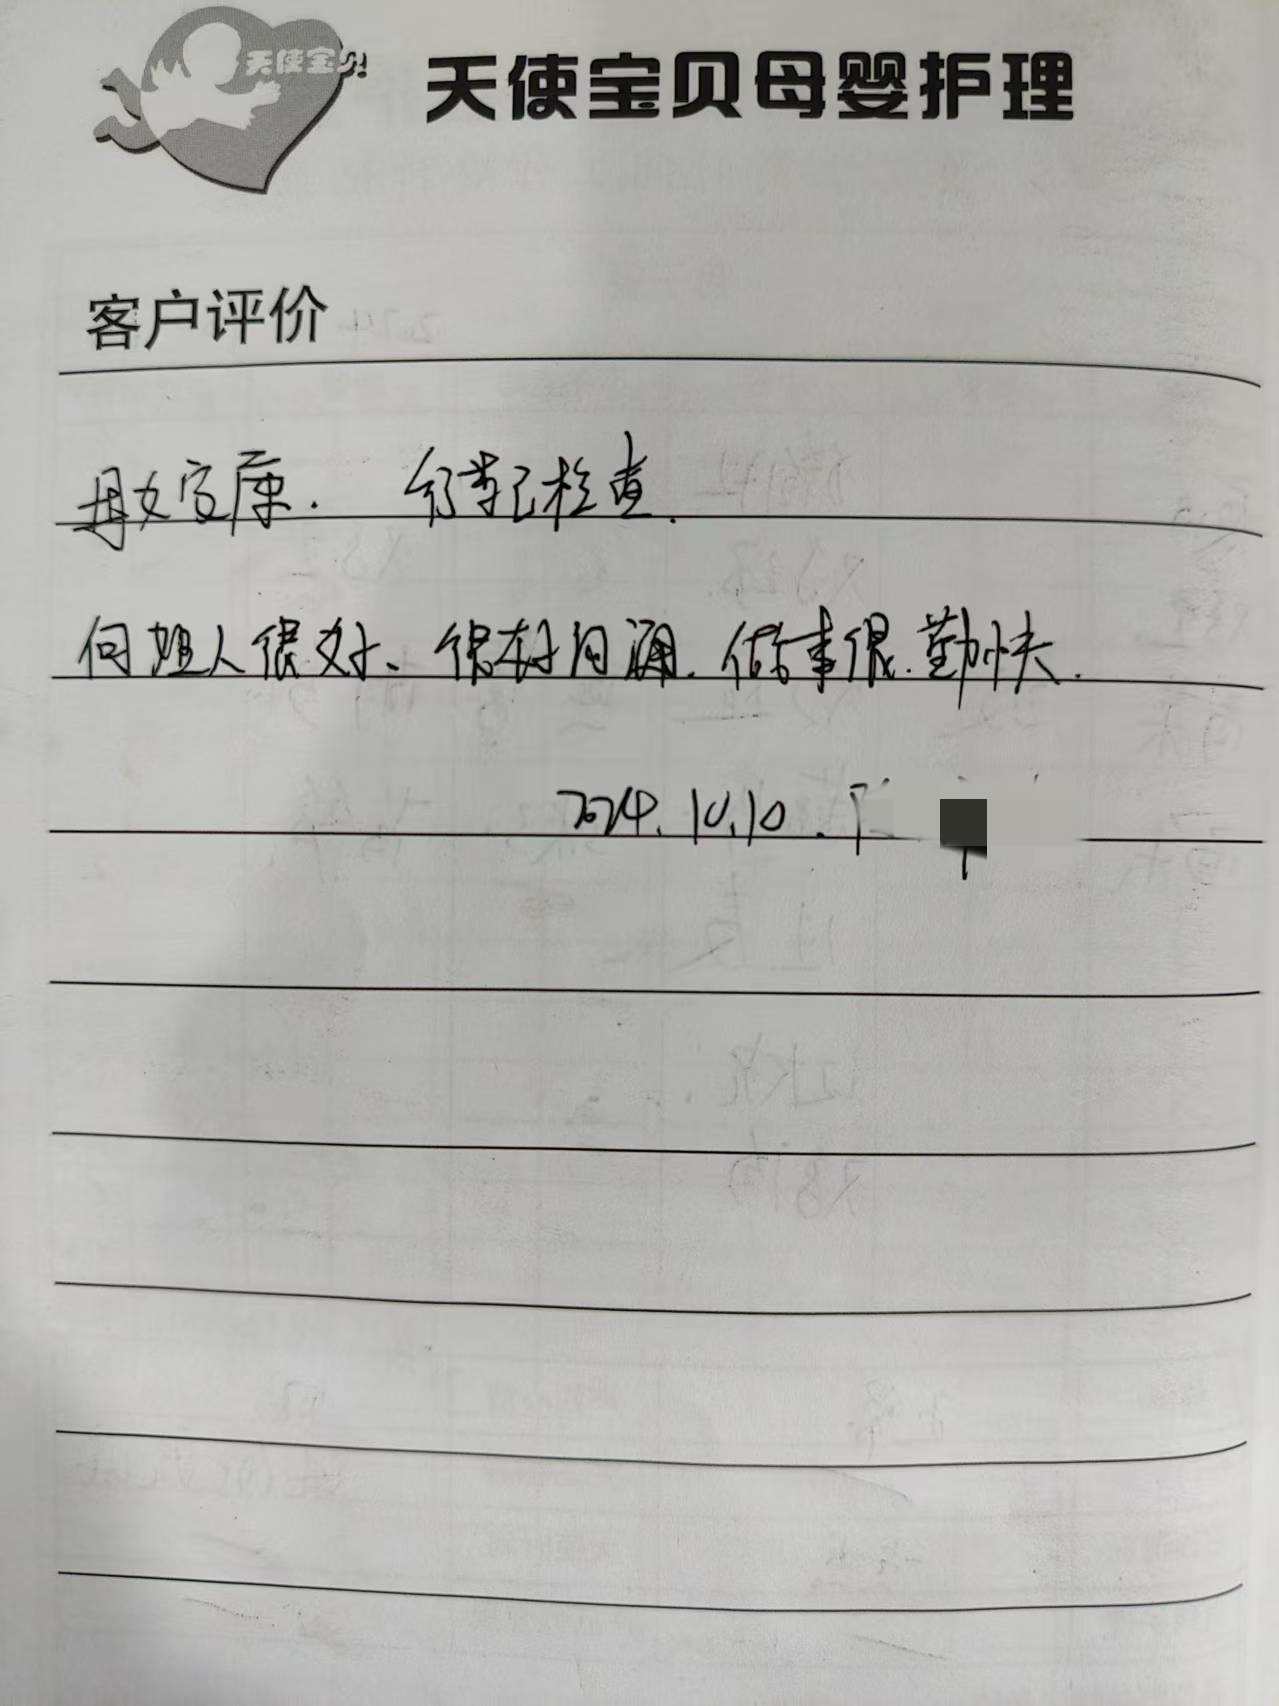 天使宝贝 天使宝贝母婴护理
客户评价
母女安康. 仔细检查.
何姐人很好、很好沟通.做事很勤快.
2024.10.10.